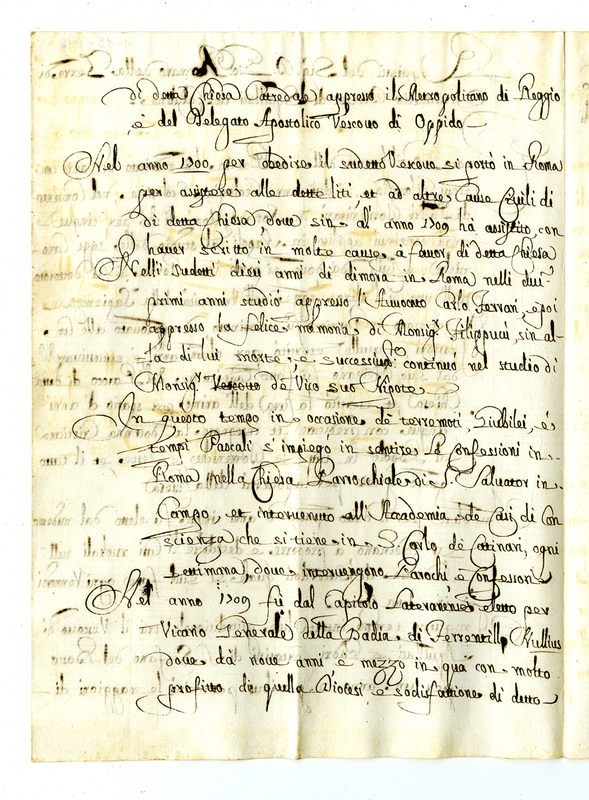 di detta Chiesa Catredale appresso il Metropolitano di Reggio
e del Delegato Apostolico Vescovo di Oppido
Nel anno 1700. per obedire il sudetto Vescovo si portò in Roma
per assistere alle dette liti, et ad altre Cause Civili di
di detta Chiesa, dove sin al anno 1709 hà assistito, con
haver scritto in molte cause a favor di detta Chiesa
Nelli sudetti dieci anni di dimora in Roma nelli
primi anni studiò appresso l'Auvocato Carlo Ferrari, e poi
appresso la felice memoria di Monsigr Filippucci, sin al-
la di lui morte, e continuò nel studio di
Monsigr Vescovo de Vico suo Nipote
In questo tempo in occasione de terremoti, Giubilei, è
tempi Pascali s'impiegò in sentire le Confessioni in
Roma nella Chiesa Parrocchiale di S. Salvator in
Campo, et intervenuto all'Academia de Casi di Con
scienza che si tiene in S. Carlo de Catinari, ogni
settimana, dove intervengono Parochi e Confessori
Nel anno 1709 fù dal Capitolo Lateranense eletto per
Vicario Generale della Badia di Ferrentillo Nullius
dove da nove anni e mezzo in qua con molto
profitto di quella Diocesi, e sodisfattione di detto